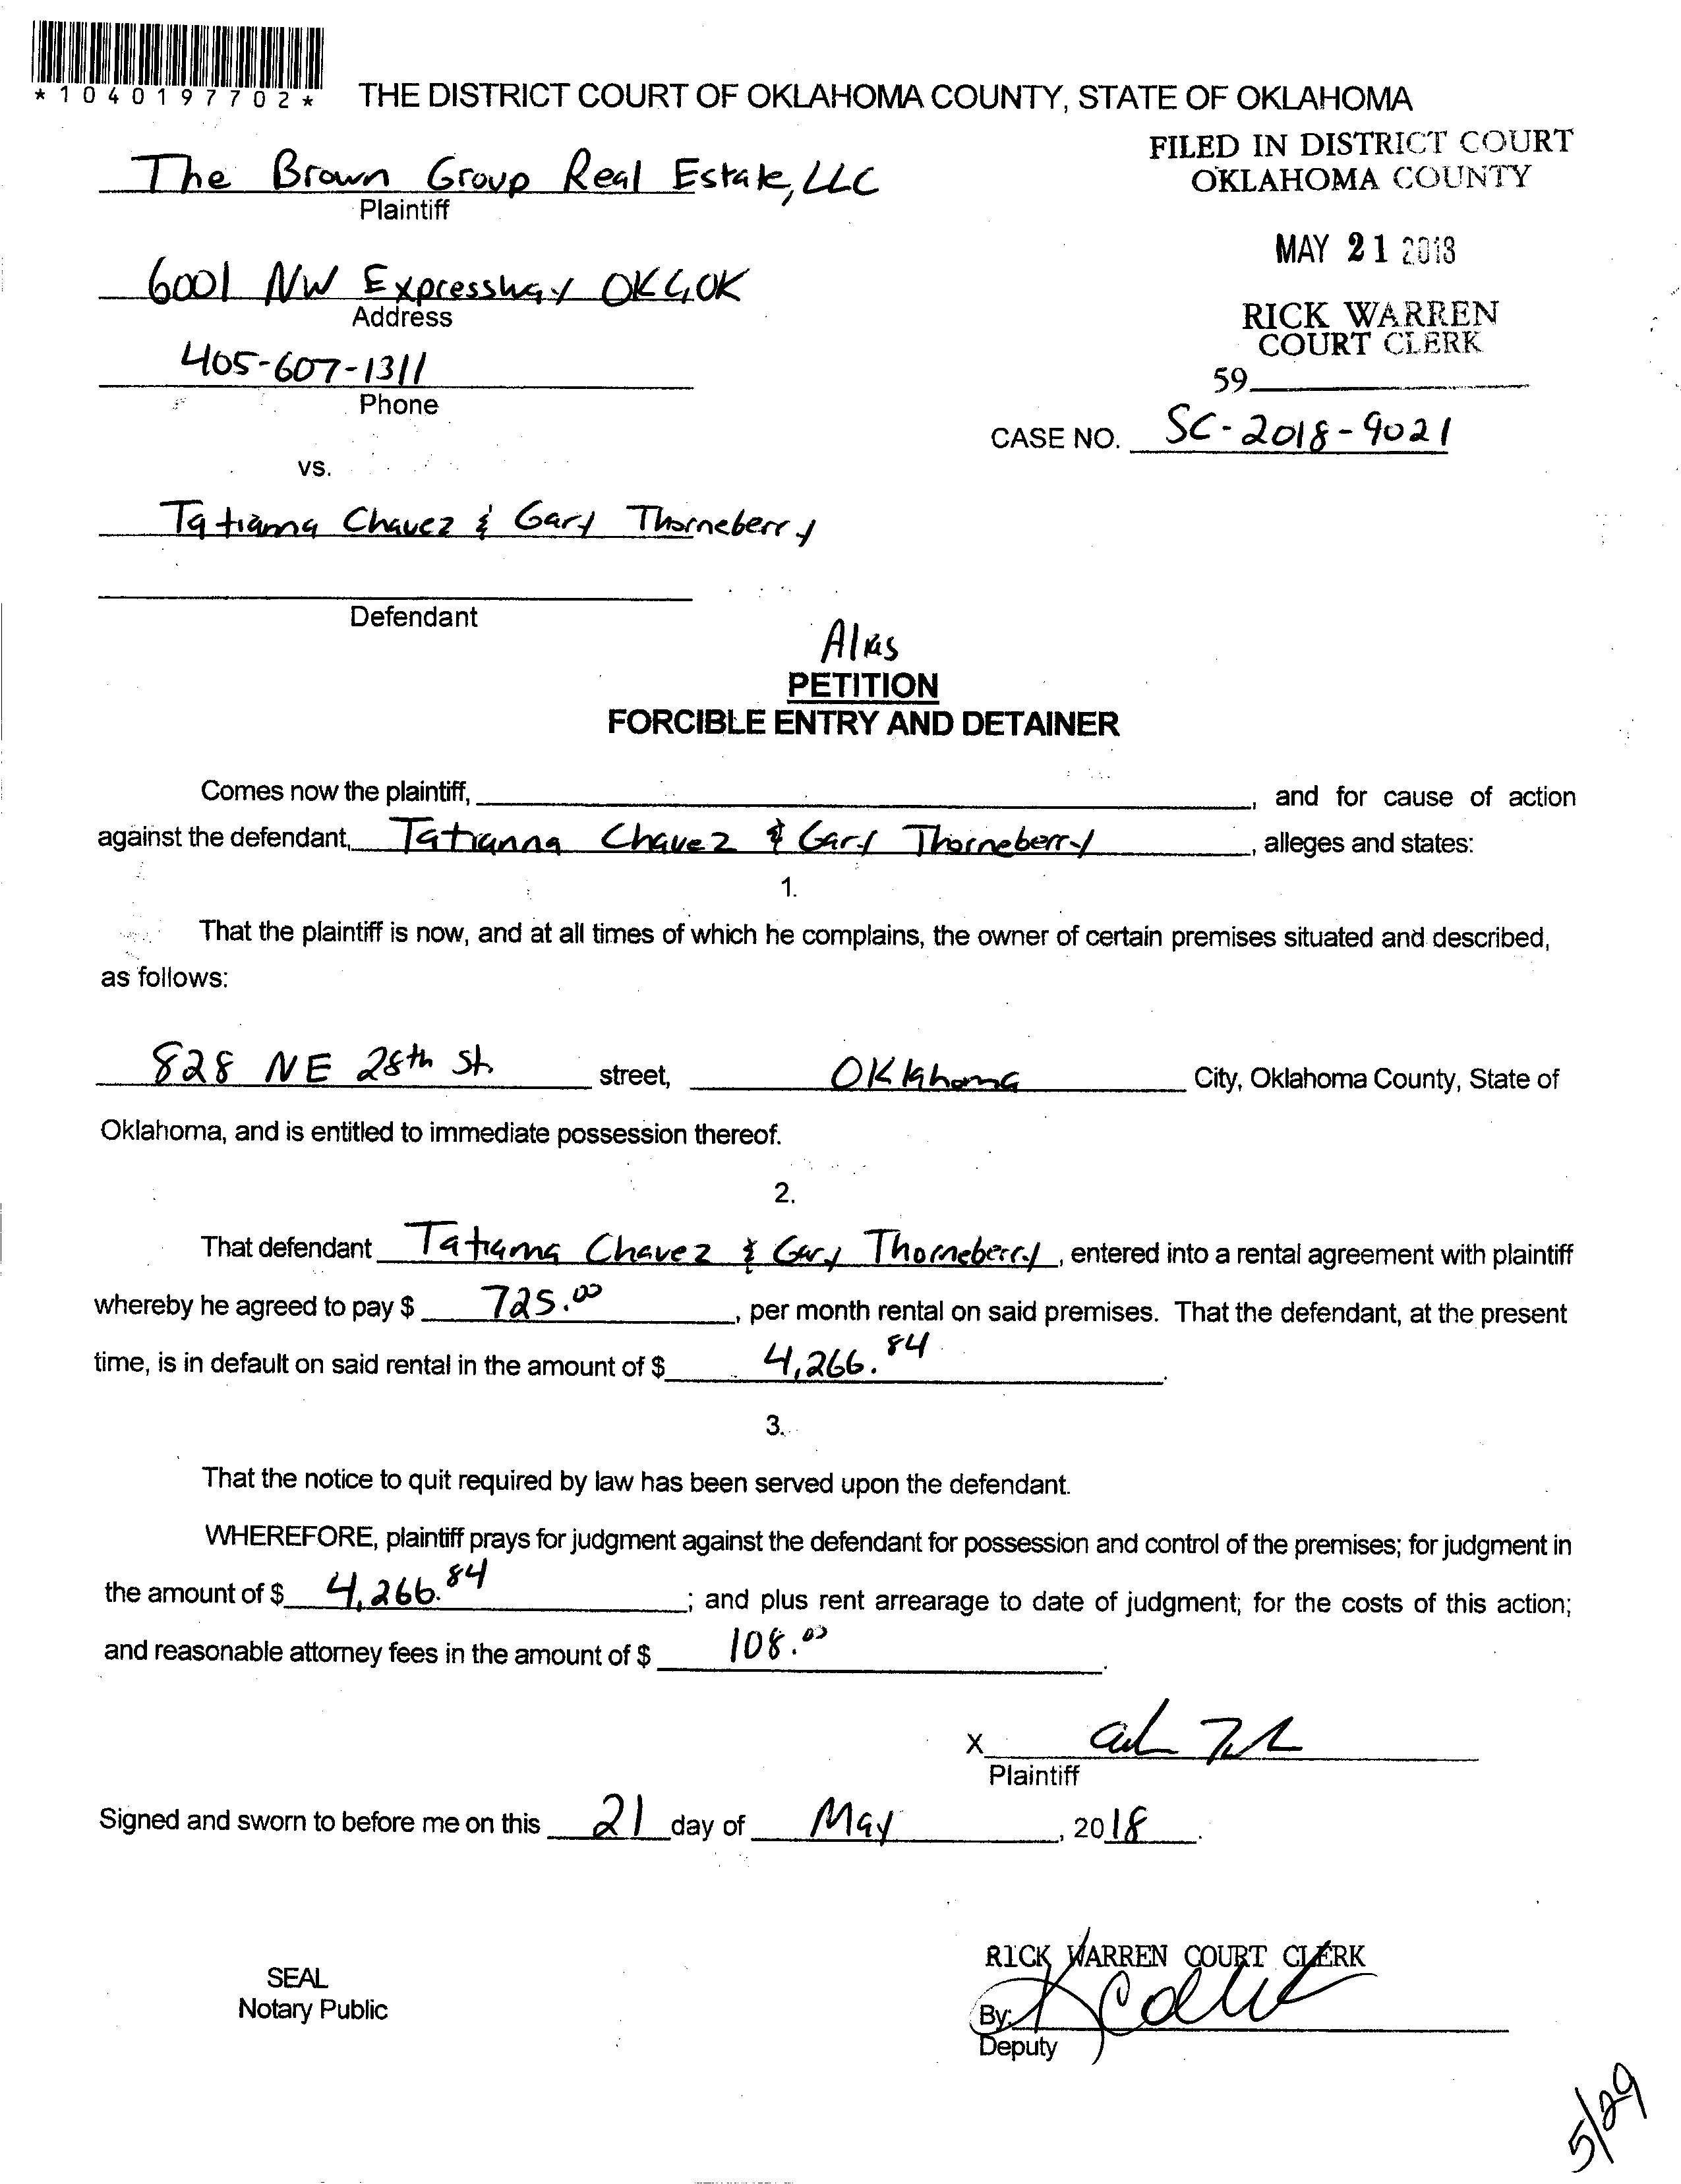 *1040197702*
THE DISTRICT COURT OF OKLAHOMA COUNTY, STATE OF OKLAHOMA
FILED IN DISTRICT COURT
OKLAHOMA COUNTY
The Brown Group Real Estate, LLC
Plaintiff
MAY 21 2018
6001 NW Expressway OKC, OK
Address
RICK WARREN
COURT CLERK
405-607-1311
Phone
59
CASE NO. SC-2018-9021
vs.
Tatianna Chavez & Gary Thorneberry
Defendant
Alias
PETITION
FORCIBLE ENTRY AND DETAINER
Comes now the plaintiff, , and for cause of action
against the defendant, Tatianna Chavez & Gary Thorneberry, alleges and states:
1.
That the plaintiff is now, and at all times of which he complains, the owner of certain premises situated and described,
as follows:
828 NE 28th St. street, Oklahoma City, Oklahoma County, State of
Oklahoma, and is entitled to immediate possession thereof.
2.
That defendant Tatianna Chavez & Gary Thorneberry, entered into a rental agreement with plaintiff
whereby he agreed to pay $ 725.00, per month rental on said premises. That the defendant, at the present
time, is in default on said rental in the amount of $ 4,266.84.
3.
That the notice to quit required by law has been served upon the defendant.
WHEREFORE, plaintiff prays for judgment against the defendant for possession and control of the premises; for judgment in
the amount of $ 4,266.84; and plus rent arrearage to date of judgment; for the costs of this action;
and reasonable attorney fees in the amount of $ 108.00.
X
Plaintiff
Signed and sworn to before me on this 21 day of May, 2018.
RICK WARREN COURT CLERK
SEAL
Notary Public
By:
Deputy
5/29